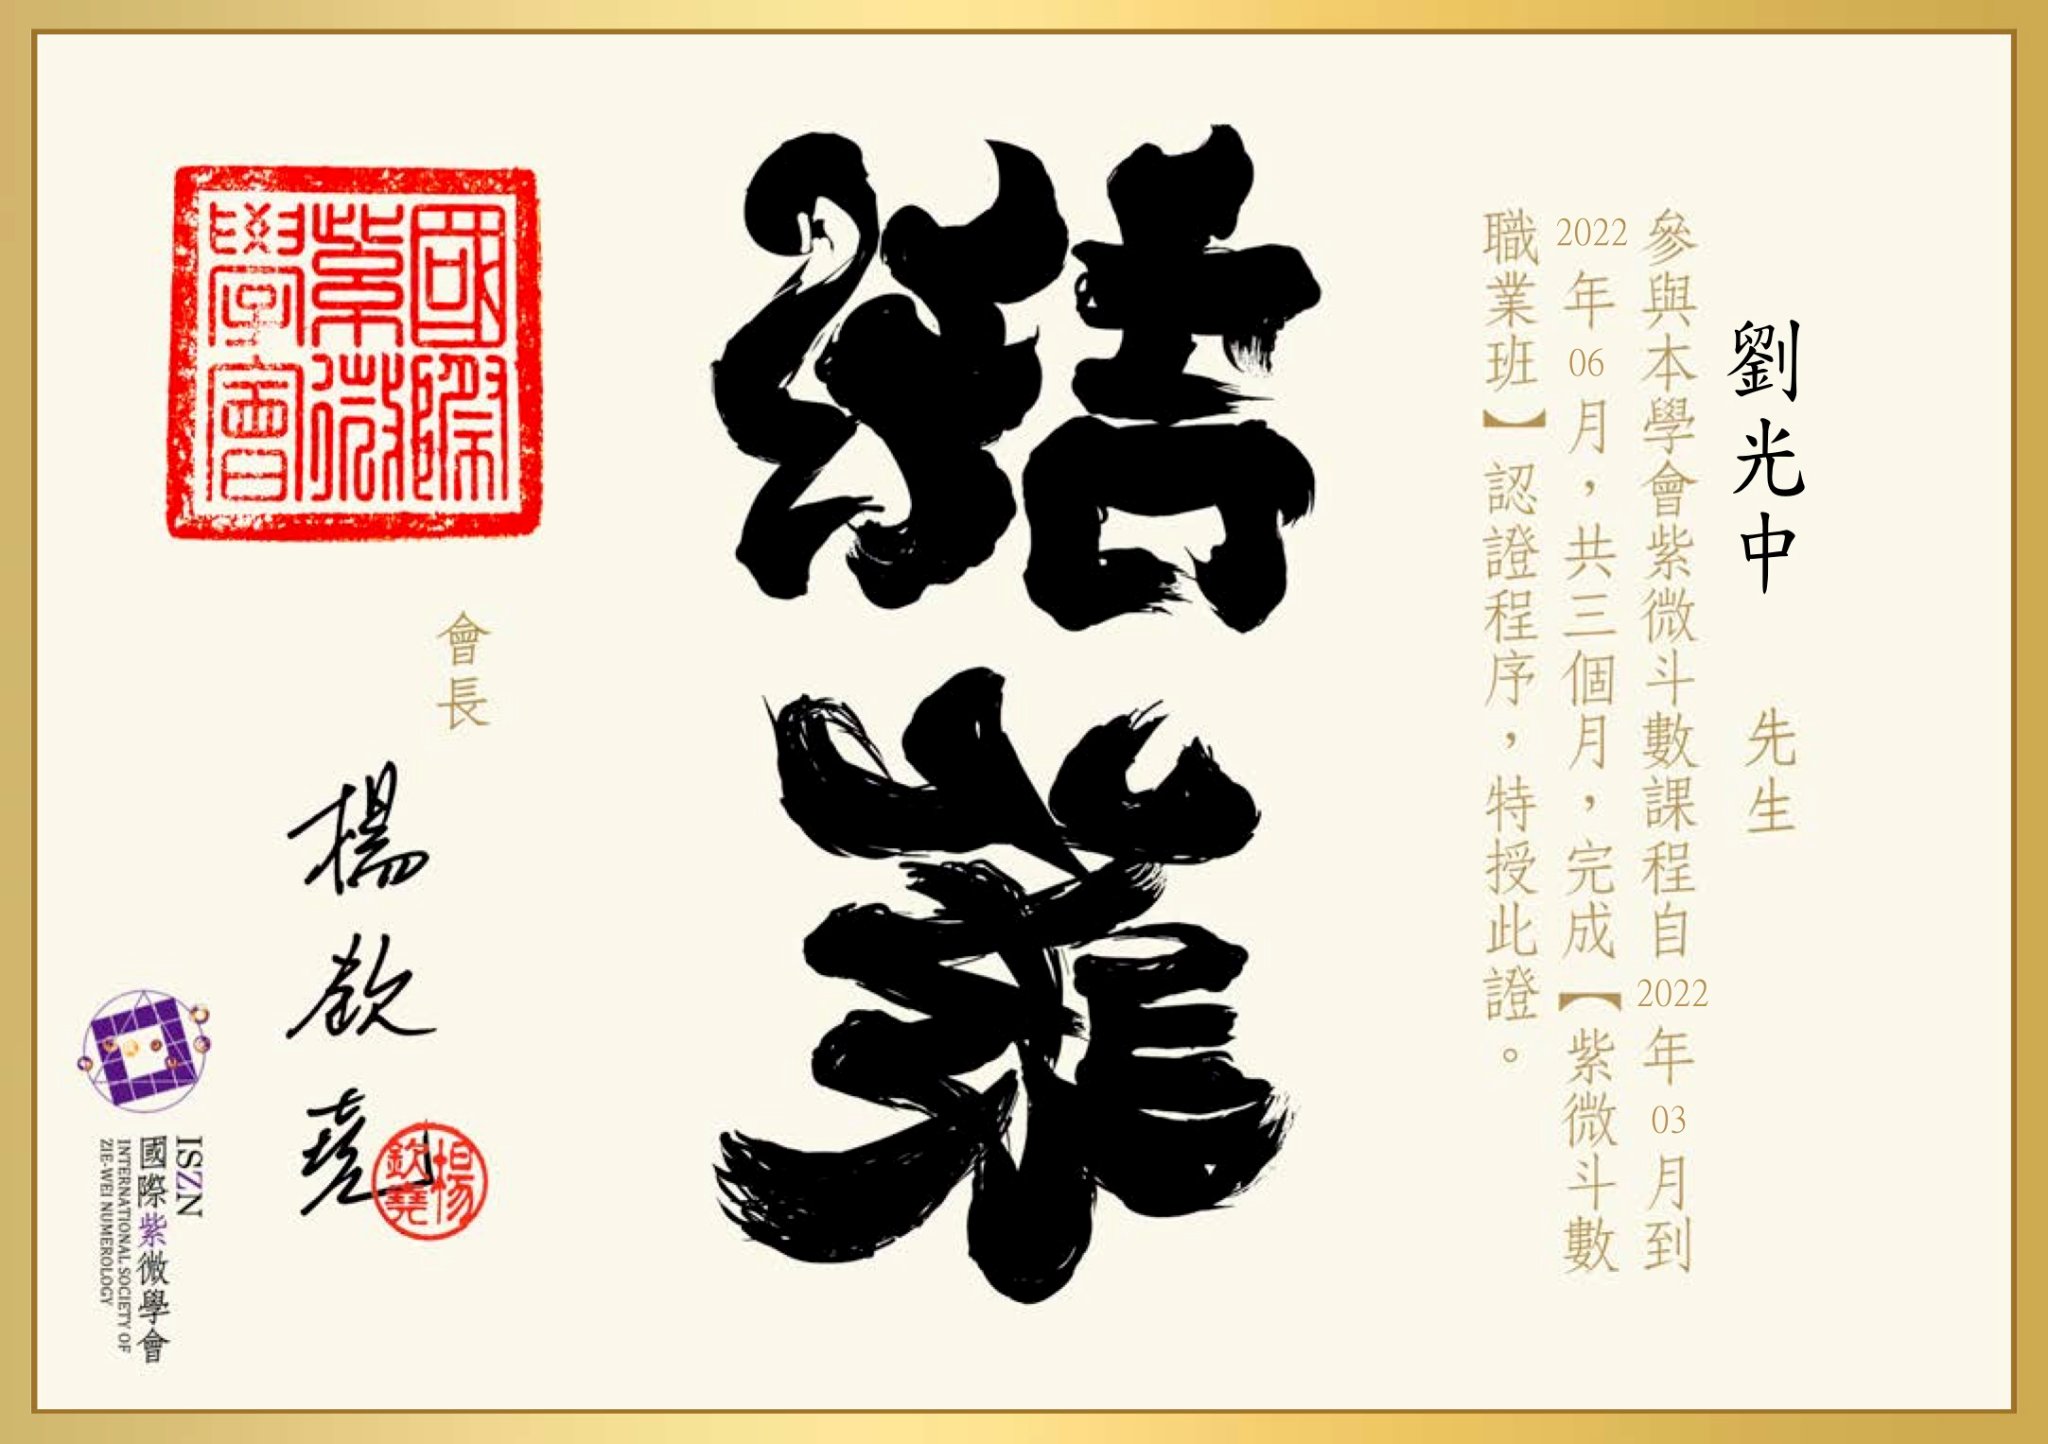 劉光中 先生
參與本學會紫微斗數課程自2022年03月到
2022年06月，共三個月，完成【紫微斗數
職業班】認證程序，特授此證。
結業
國際
紫微
學會
會長
楊欽堯
楊
欽堯
ISZN
國際紫微學會
INTERNATIONAL SOCIETY OF
ZIE-WEI NUMEROLOGY